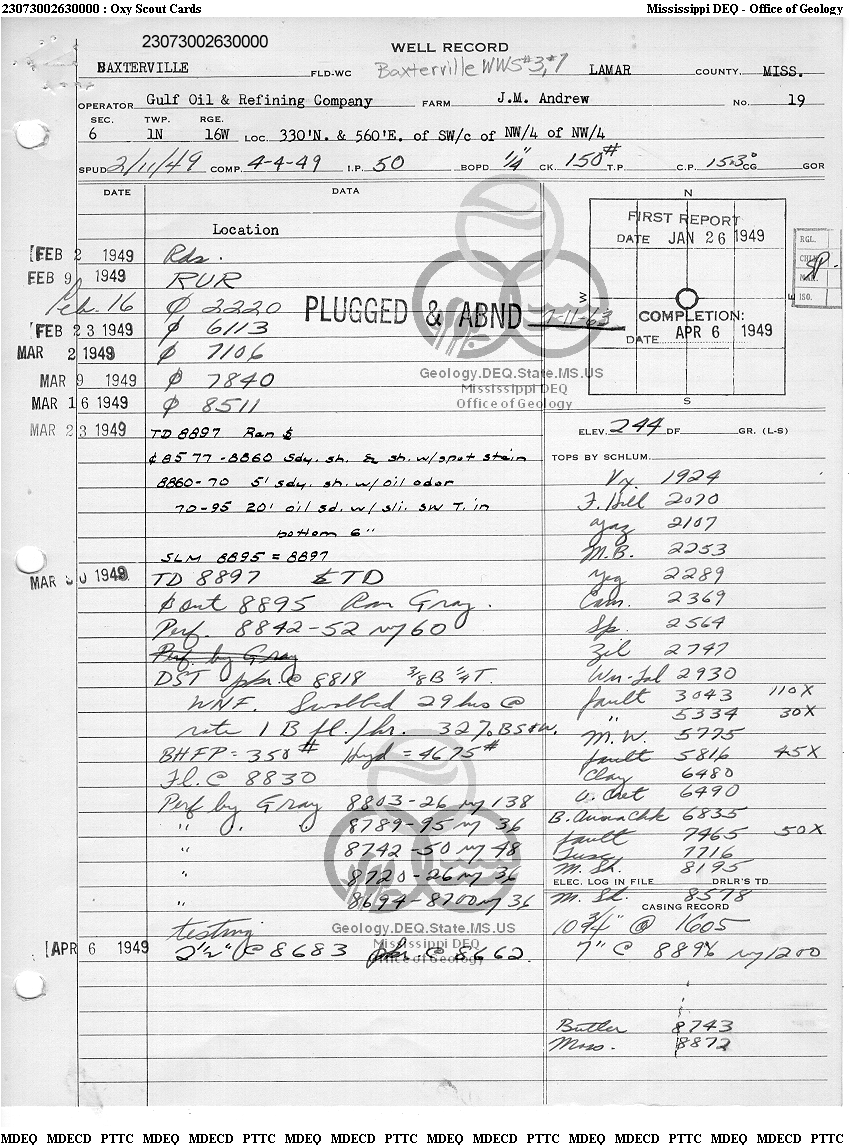 23073002630000 : Oxy Scout Cards Mississippi DEQ - Office of Geology
23073002630000
WELL RECORD
BAXTERVILLE FLD-WC Baxterville WWS #3, #7 LAMAR COUNTY. MISS.
OPERATOR Gulf Oil & Refining Company FARM J.M. Andrew No. 19
SEC. TWP. RGE.
6 1N 16W LOC. 330'N. & 560'E. of SW/c of NW/4 of NW/4
SPUD 2/11/49 COMP. 4-4-49 I.P. 50 BOPD 1/4" CK. 150# T.P. C.P. 15.3° CG GOR
DATE DATA
N
FIRST REPORT
DATE JAN 26 1949
RGL.
W
E
ISO.
COMPLETION:
DATE APR 6 1949
S
Location
FEB 2 1949 Rds.
FEB 9 1949 RUR
Feb. 16 2220
PLUGGED & ABND 7-11-63
FEB 23 1949 6113
MAR 2 1949 7106
MAR 9 1949 7840
MAR 16 1949 8511
Geology.DEQ.State.MS.US
Mississippi DEQ
Office of Geology
MAR 23 1949 TD 8897 Ran
8577-8860 Sdy. sh. & sh. w/spot stain
8860-70 5' sdy. sh. w/oil odor
70-95 20' oil sd. w/ sli. SW T. in
bottom 6"
SLM 8895 = 8897
MAR 30 1949 TD 8897 TD
out 8895 Ran Gray.
Perf. 8842-52 w/60
Perf. by Gray
DST pkr. @ 8818 3/8 B 1/4 T.
WNF. Swabbed 29 hrs @
rate 1 B fl./hr. 32% BS&W.
BHFP = 350# Hyd = 4675#
Fl. @ 8830
Perf by Gray 8803-26 w/138
" 8789-95 w/ 36
" 8742-50 w/ 48
" 8720-26 w/ 36
" 8694-8700 w/ 36
testing
Geology.DEQ.State.MS.US
Mississippi DEQ
Office of Geology
APR 6 1949 2 1/2" @ 8683 pkr. @ 8662
ELEV. 244 DF GR. (L-S)
TOPS BY SCHLUM.
Vx. 1924
F. Hill 2070
Yaz 2107
M.B. 2253
Yeg 2289
Cam. 2369
Sp. 2564
Zil 2747
Wn-Sal 2930
fault 3043 110X
" 5334 30X
M.W. 5775
fault 5816 45X
Clay 6480
U. Cret 6490
B. Annachk 6835
fault 7465 50X
Tusc 7716
M. Sh. 8195
ELEC. LOG IN FILE DRLR'S TD
M. Sd. 8578
CASING RECORD
10 3/4" @ 1605
7" @ 8896 w/1200
Butler 8743
Moso. 8872
MDEQ MDECD PTTC MDEQ MDECD PTTC MDEQ MDECD PTTC MDEQ MDECD PTTC MDEQ MDECD PTTC MDEQ MDECD PTTC